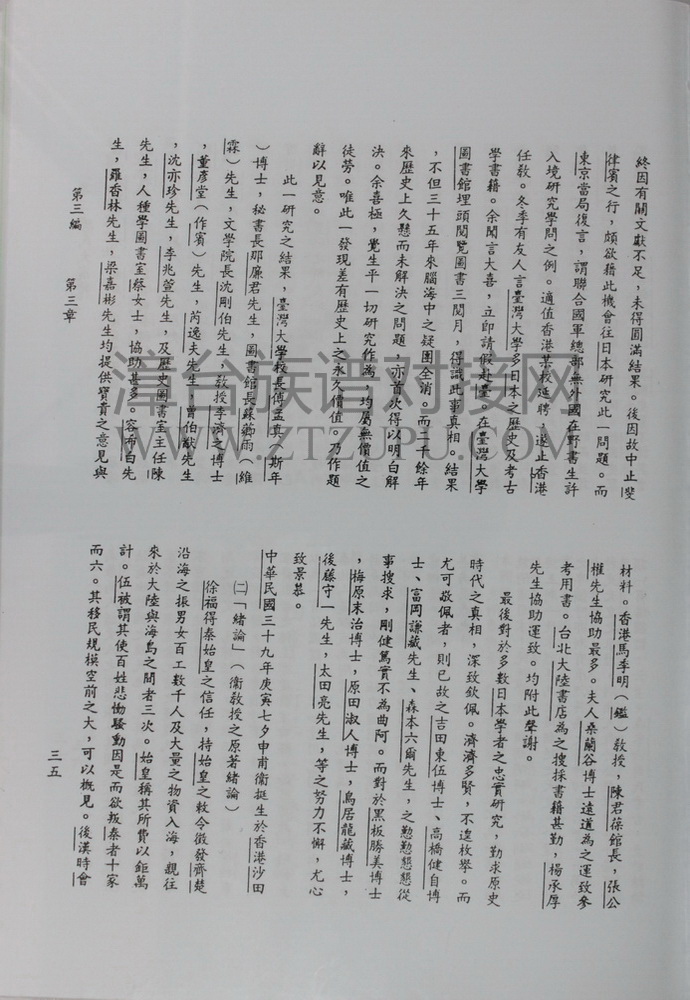 終因有關文獻不足，未得圓滿結果。後因故中止斐
律賓之行，頗欲藉此機會往日本研究此一問題。而
東京當局復言，謂聯合國軍總部無外國在野書生許
入境研究學問之例。適值香港某校延聘，遂止香港
任敎。冬季有友人言臺灣大學多日本之歷史及考古
學書籍。余聞言大喜，立卽請假赴臺。在臺灣大學
圖書館埋頭閱覽圖書三閱月，得識此事真相。結果
，不但三十五年來腦海中之疑團全消。而二千餘年
來歷史上久懸而未解決之問題，亦首次得以明白解
決。余喜極，覺生平一切研究作為，均屬無價值之
徒勞。唯此一發現差有歷史上之永久價值。乃作題
辭以見意。
此一研究之結果，臺灣大學校長傅孟真（斯年
）博士，秘書長那廉君先生，圖書館長蘇薌雨（維
霖）先生，文學院長沈剛伯先生，敎授李濟之博士
，董彥堂（作賓）先生，芮逸夫先生，曾伯猷先生
，沈亦珍先生，李兆萱先生，及歷史圖書室主任陳
先生，人種學圖書室蔡女士，協助甚多。容希白先
生，羅香林先生，梁嘉彬先生均提供寶貴之意見與
第三編　第三章
材料。香港馬季明（鑑）敎授，陳君葆館長，張公
權先生協助最多。夫人桑蘭谷博士遠道為之運致參
考用書。台北大陸書店為之搜採書籍甚勤，楊承厚
先生協助運致。均附此聲謝。
最後對於多數日本學者之忠實研究，勤求原史
時代之真相，深致欽佩。濟濟多賢，不遑枚舉。而
尤可敬佩者，則已故之吉田東伍博士、高橋健自博
士、富岡謙藏先生、森本六爾先生，之懃懃懇懇從
事搜求，剛健篤實不為曲阿。而對於黑板勝美博士
，梅原末治博士，原田淑人博士，鳥居龍藏博士，
後藤守一先生，太田亮先生，等之努力不懈，尤心
致景慕。
中華民國三十九年庚寅七夕申甫衞挺生於香港沙田
㈡「緒論」（衞敎授之原著緒論）
徐福得秦始皇之信任，持始皇之敕令徵發齊楚
沿海之振男女百工數千人及大量之物資入海，親往
來於大陸與海島之間者三次。始皇稱其所費以鉅萬
計。伍被謂其使百姓悲慟騷動因是而欲叛秦者十家
而六。其移民規模空前之大，可以槪見。後漢時會
三五
漳台族谱对接网
WWW.ZTZUPU.COM